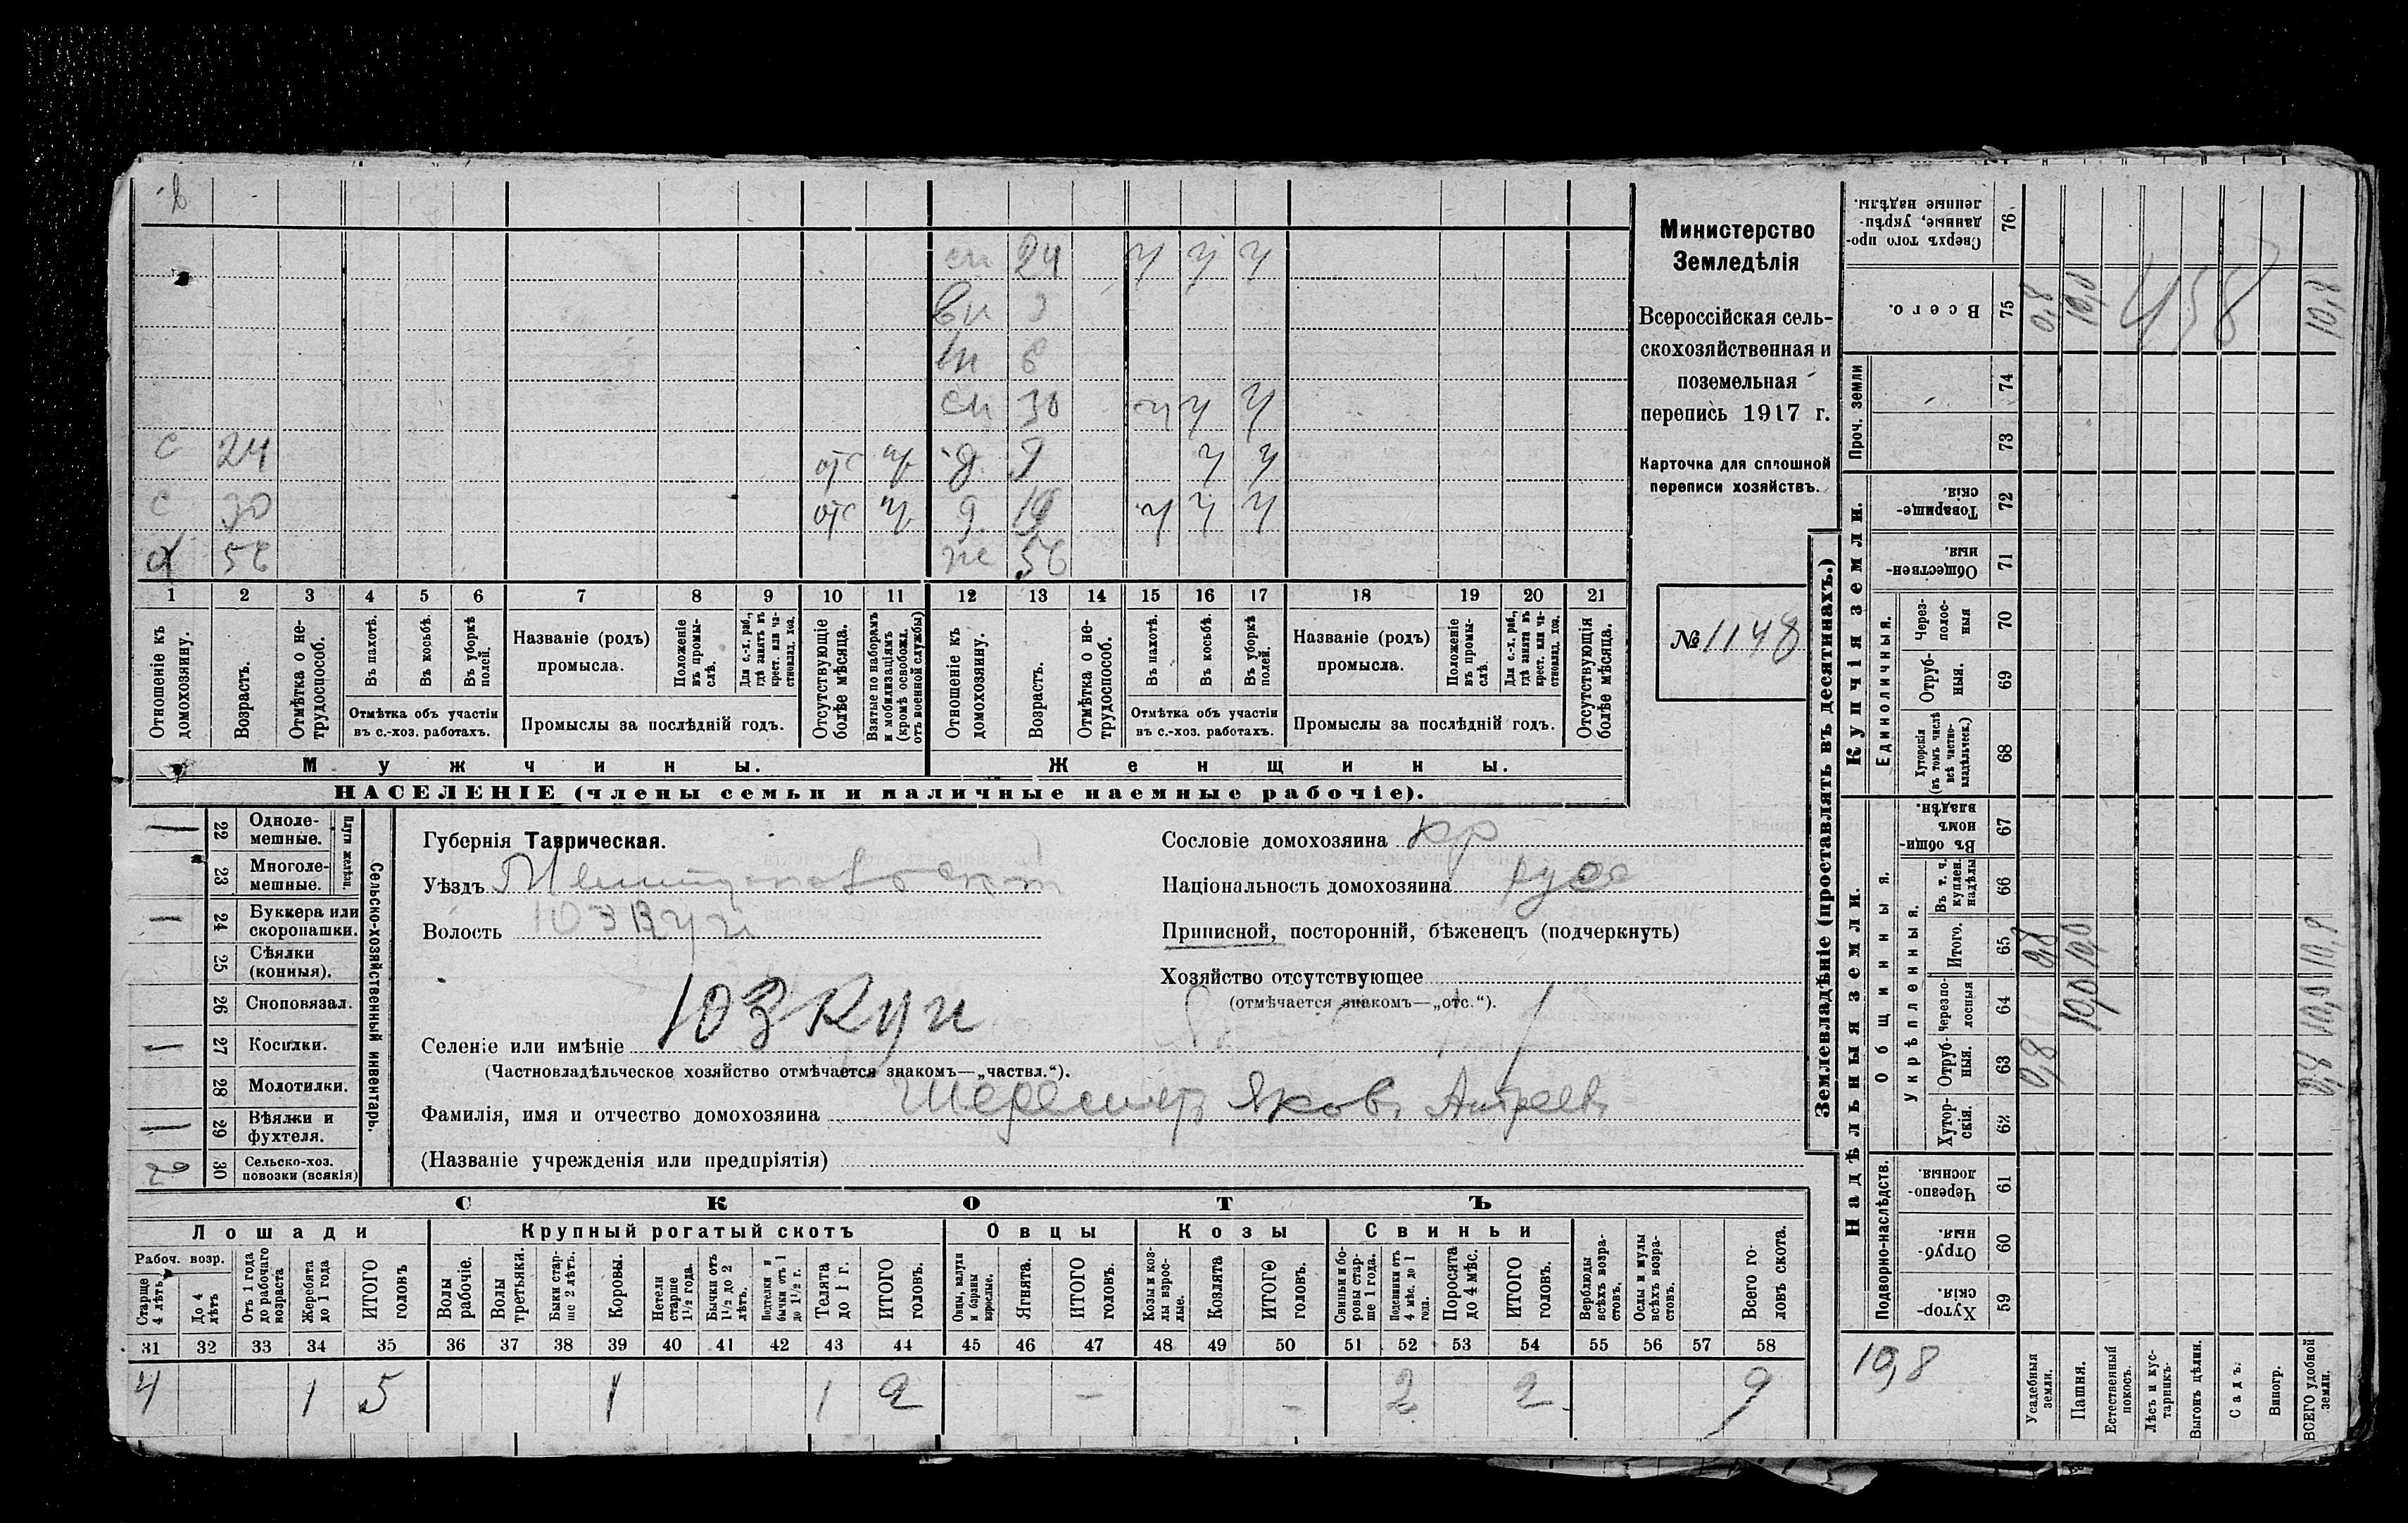 24 ч ч ч
вн 3
вн 6
сн 30 ч ч ч
с 24 отс д 9 ч ч
с 30 отс д 19 ч ч ч
х 56 ж 56
1 2 3 4 5 6 7 8 9 10 11 12 13 14 15 16 17 18 19 20 21
Отношеніе къ домохозяину.
Возрастъ.
Отмѣтка о не-трудоспособ.
Въ пахотѣ.
Въ косьбѣ.
Въ уборкѣ полей.
Отмѣтка объ участіи въ с.-хоз. работахъ.
Названіе (родъ) промысла.
Положеніе въ промы-слѣ.
Для с.-х. раб., гдѣ занятъ въ крест. или ча-стновлад. хоз.
Промыслы за послѣдній годъ.
Отсутствующіе болѣе мѣсяца.
Взятые по наборамъ и мобилизаціямъ (кромѣ освобожд. отъ военной службы)
Отношеніе къ домохозяину.
Возрастъ.
Отмѣтка о не-трудоспособ.
Въ пахотѣ.
Въ косьбѣ.
Въ уборкѣ полей.
Отмѣтка объ участіи въ с.-хоз. работахъ.
Названіе (родъ) промысла.
Положеніе въ промы-слѣ.
Для с.-х. раб., гдѣ занята въ крест. или ча-стновлад. хоз.
Промыслы за послѣдній годъ.
Отсутствующія болѣе мѣсяца.
Мужчины. Женщины.
НАСЕЛЕНІЕ (члены семьи и наличные наемные рабочіе).
Министерство
Земледѣлія
Всероссійская сель-
скохозяйственная и
поземельная
перепись 1917 г.
Карточка для сплошной
переписи хозяйствъ.
№ 1148
Сельско-хозяйственный инвентарь.
Плуги желѣзн.
1 22 Одноле-мешные.
23 Многоле-мешные.
1 24 Буккера или скоропашки.
25 Сѣялки (конныя).
26 Сноповязал.
1 27 Косилки.
28 Молотилки.
1 29 Вѣялки и фухтеля.
2 30 Сельско-хоз. повозки (всякія)
Губернія Таврическая.
Уѣздъ
Волость Юзкуи
Селеніе или имѣніе Юзкуи
(Частновладѣльческое хозяйство отмѣчается знакомъ—„частвл.“).
Фамилія, имя и отчество домохозяина Яковъ
(Названіе учрежденія или предпріятія)
Сословіе домохозяина кр
Національность домохозяина русс
Приписной, посторонній, бѣженецъ (подчеркнуть)
Хозяйство отсутствующее
(отмѣчается знакомъ—„отс.“).
СКОТЪ
Лошади Крупный рогатый скотъ Овцы Козы Свиньи
Рабоч. возр.
Старше 4 лѣтъ
До 4 лѣтъ
Отъ 1 года до рабочаго возраста
Жеребята до 1 года
ИТОГО головъ
Волы рабочіе.
Волы третьяки.
Быки стар-ше 2 лѣтъ.
Коровы.
Нетели старше 1½ года.
Бычки отъ 1½ до 2 лѣтъ.
Подтелки и бычки отъ 1 до 1½ г.
Телята до 1 г.
ИТОГО головъ.
Овцы, валухи и бараны взрослые.
Ягнята.
ИТОГО головъ.
Козы и коз-лы взрос-лые.
Козлята
ИТОГО головъ.
Свиньи и бо-ровы стар-ше 1 года.
Подсвинки отъ 4 мѣс. до 1 года.
Поросята до 4 мѣс.
ИТОГО головъ.
Верблюды всѣхъ возра-стовъ.
Ослы и мулы всѣхъ возра-стовъ.
Всего го-ловъ скота.
31 32 33 34 35 36 37 38 39 40 41 42 43 44 45 46 47 48 49 50 51 52 53 54 55 56 57 58
4 1 5 1 1 2 - - 2 2 9
Землевладѣніе (проставлять въ десятинахъ.)
Купчія земли.
Надѣльныя земли.
Проч. земли
Единоличныя.
Общинныя.
Укрѣпленныя.
Подворно-наслѣдств.
Сверхъ того про-данные, укрѣп-ленные надѣлы. 76
Всего. 75 0,8 10,0 458 10,8
74
73
Товарище-скія. 72
Обществен-ныя. 71
Через-полос-ныя 70
Отруб-ныя. 69
Хуторскія (въ томъ числѣ всѣ частно-владѣльческ.) 68
Въ общи-номъ владѣн. 67
Въ т. ч. куплен. надѣлы 66
Итого. 65 0,8 10,0 10,8
Черезпо-лосныя 64 10,0 10,0
Отруб-ныя. 63 0,8 0,8
Хутор-скія. 62
Черезпо-лосныя. 61
Отруб-ныя. 60
Хутор-скія. 59
10,8
Усадебныя земли.
Пашня.
Естественный покосъ.
Лѣсъ и кус-тарникъ.
Выгонъ цѣлин.
Садъ.
Виногр.
ВСЕГО удобной земли.